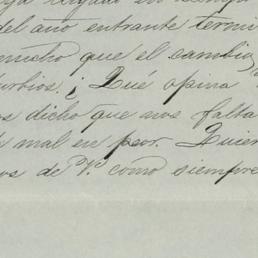 llegada en
del año entrante termi
mucho que el cambio
urbios. ¿Qué opina
os dicho que nos falta
mal en peor. Quier
os de V. como siempre